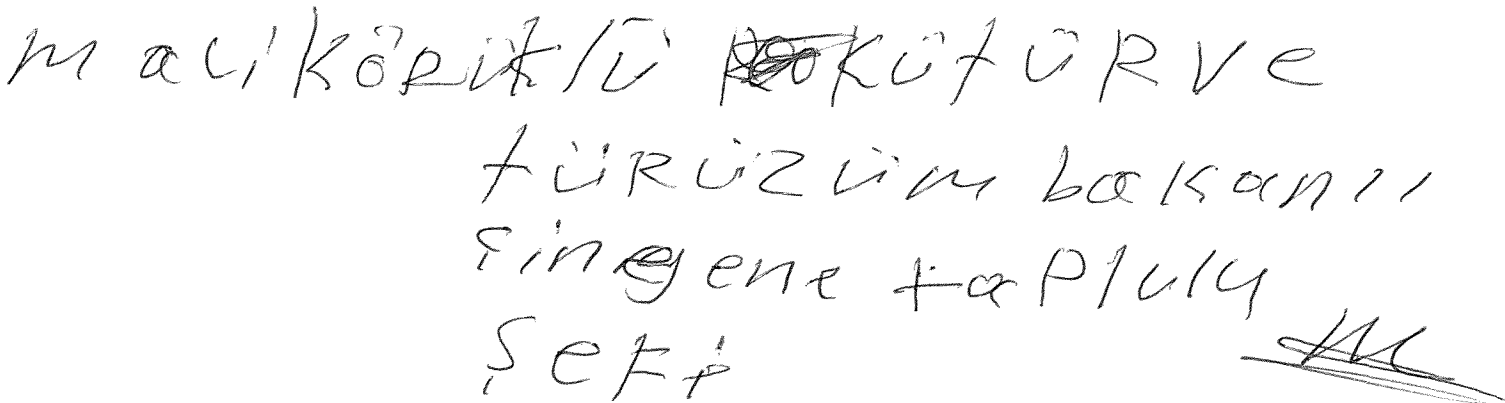 mali köRüklü kütüR ve
türüzüm bakanıı
çingene taplulu
şefi